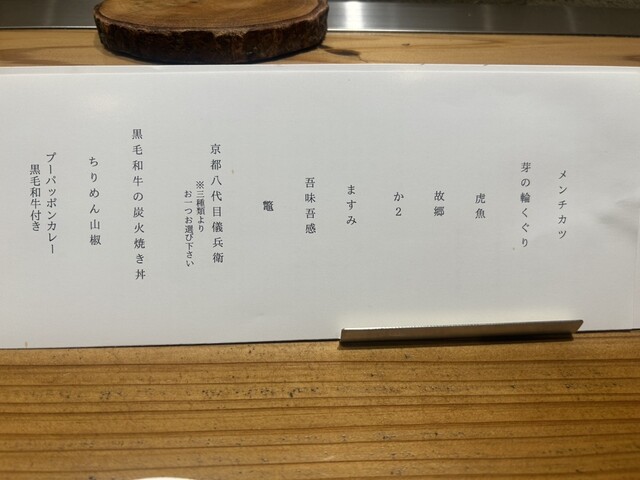 メンチカツ
芽の輪くぐり
虎魚
故郷
か２
ますみ
吾味吾感
鼈
京都八代目儀兵衛
※三種類より
お一つお選び下さい
黒毛和牛の炭火焼き丼
ちりめん山椒
プーパッポンカレー
黒毛和牛付き